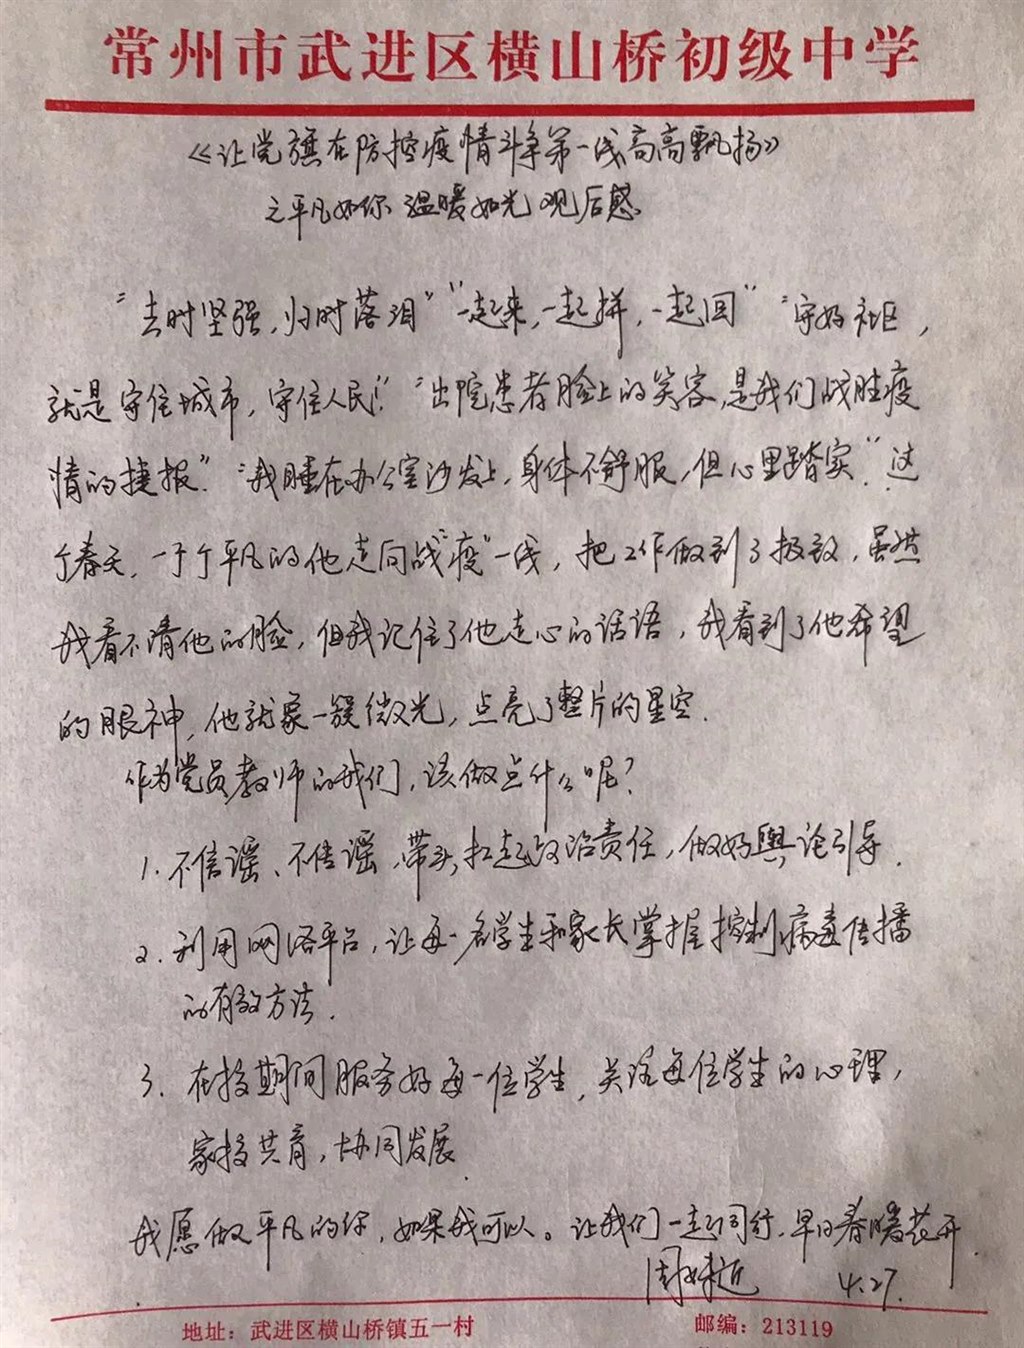 常州市武进区横山桥初级中学
《让党旗在防控疫情斗争第一线高高飘扬》
之平凡如你 温暖如光 观后感
“去时坚强,归时落泪”“一起来,一起拼,一起回”“守好社区,
就是守住城市,守住人民!”“出院患者脸上的笑容,是我们战胜疫
情的捷报”.“我睡在办公室沙发上,身体不舒服,但心里踏实.”这
个春天,一个个平凡的他走向战“疫”一线,把工作做到了极致,虽然
我看不清他的脸,但我记住了他走心的话语,我看到了他希望
的眼神,他就象一簇微光,点亮了整片的星空.
作为党员教师的我们,该做点什么呢?
1.不信谣、不传谣,带头扛起政治责任,做好舆论引导.
2.利用网络平台,让每一名学生和家长掌握控制病毒传播
的有效方法.
3.在校期间服务好每一位学生,关注每位学生的心理,
家校共育,协同发展.
我愿做平凡的你,如果我可以。让我们一起同行,早日春暖花开.
4.27.
地址:武进区横山桥镇五一村
邮编:213119